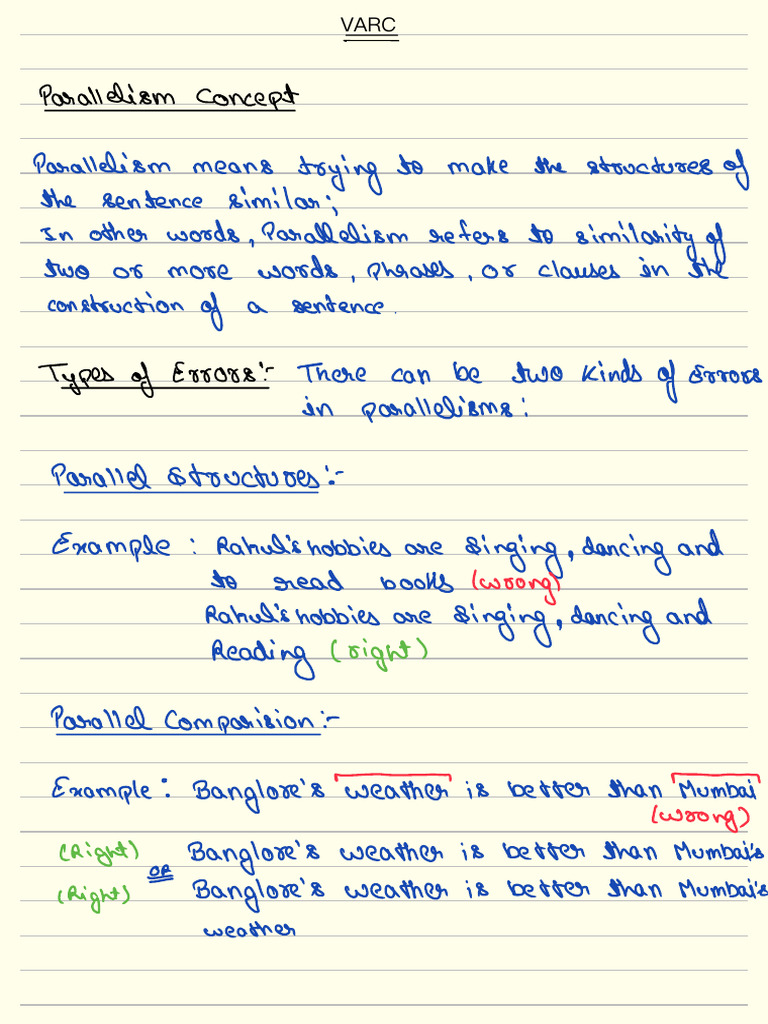 VARC
Parallelism Concept
Parallelism means trying to make the structures of
the sentence similar;
In other words, Parallelism refers to similarity of
two or more words, phrases, or clauses in the
construction of a sentence.
Types of Errors:- There can be two kinds of errors
in parallelisms:
Parallel Structures:-
Example : Rahul's hobbies are singing, dancing and
to read books (wrong)
Rahul's hobbies are singing, dancing and
Reading (right)
Parallel Comparision:-
Example: Banglore's weather is better than Mumbai
(wrong)
(Right) Banglore's weather is better than Mumbai's
OR
(Right) Banglore's weather is better than Mumbai's
weather